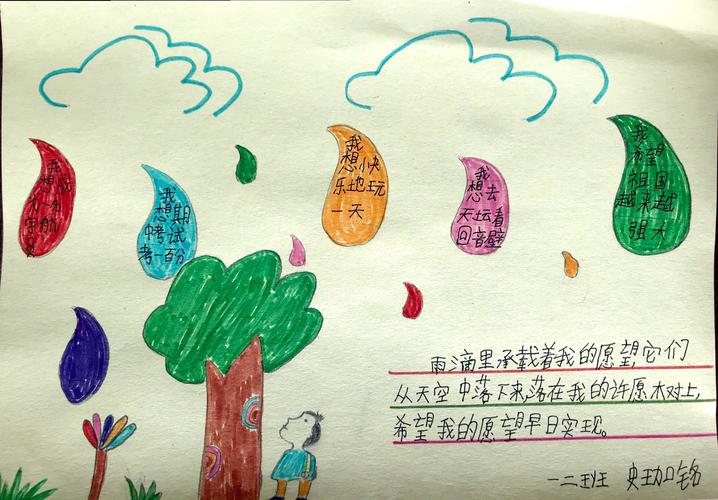 我
想成
为
宇航
员
我
想期
中考试
考一百分
我
想快
乐地玩
一天
我
想去
天坛看
回音壁
我
希望
祖国
越来越
强大
雨滴里承载着我的愿望,它们
从天空中落下来,落在我的许愿树上,
希望我的愿望早日实现。
一二班 史珈铭